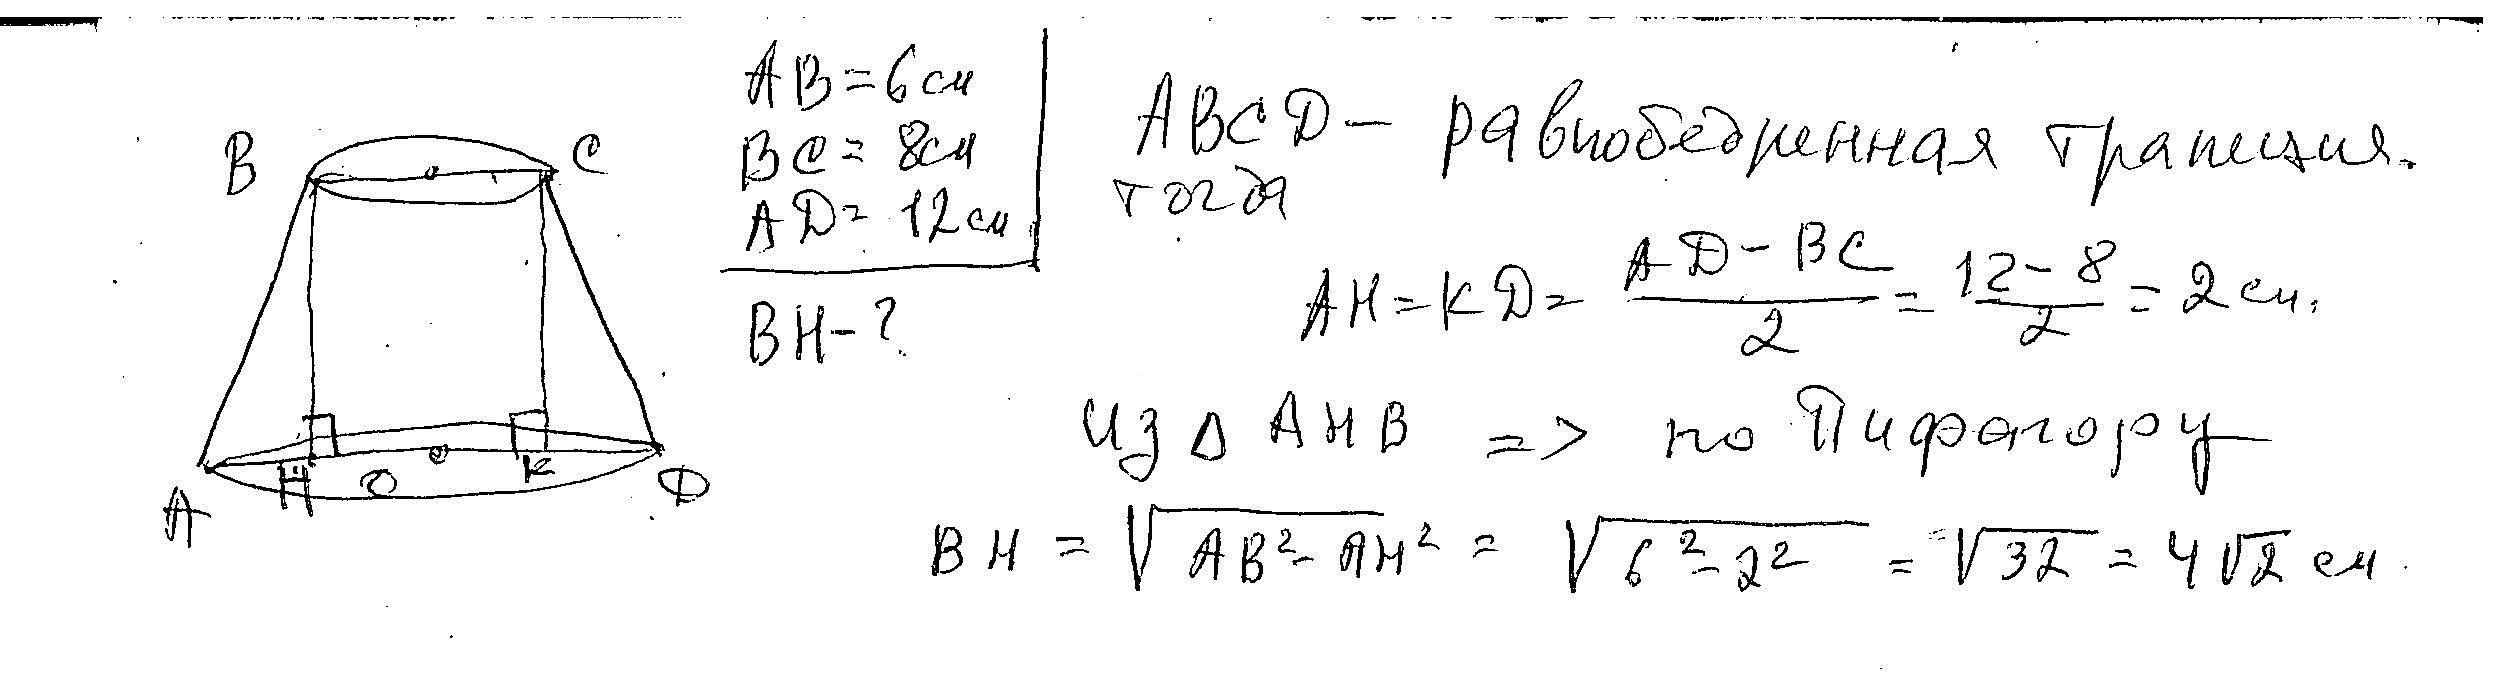 B
C
A
H
O
K
D
AB = 6 см
BC = 8 см
AD = 12 см
BH - ?
ABCD - равнобедренная трапеция.
тогда
AH = KD = (AD - BC)/2 = (12 - 8)/2 = 2 см.
из Δ AHB => по Пифагору
BH = √(AB² - AH²) = √(6² - 2²) = √32 = 4√2 см.